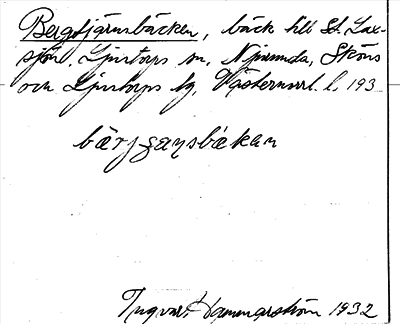 Bergtjärnsbäcken, bäck till St. Lax-
sjön, Ljustorps sn, Njurunda, Sköns
och Ljustorps tg, Västernorrl. l. 193
Ingvar Hammarström 1932